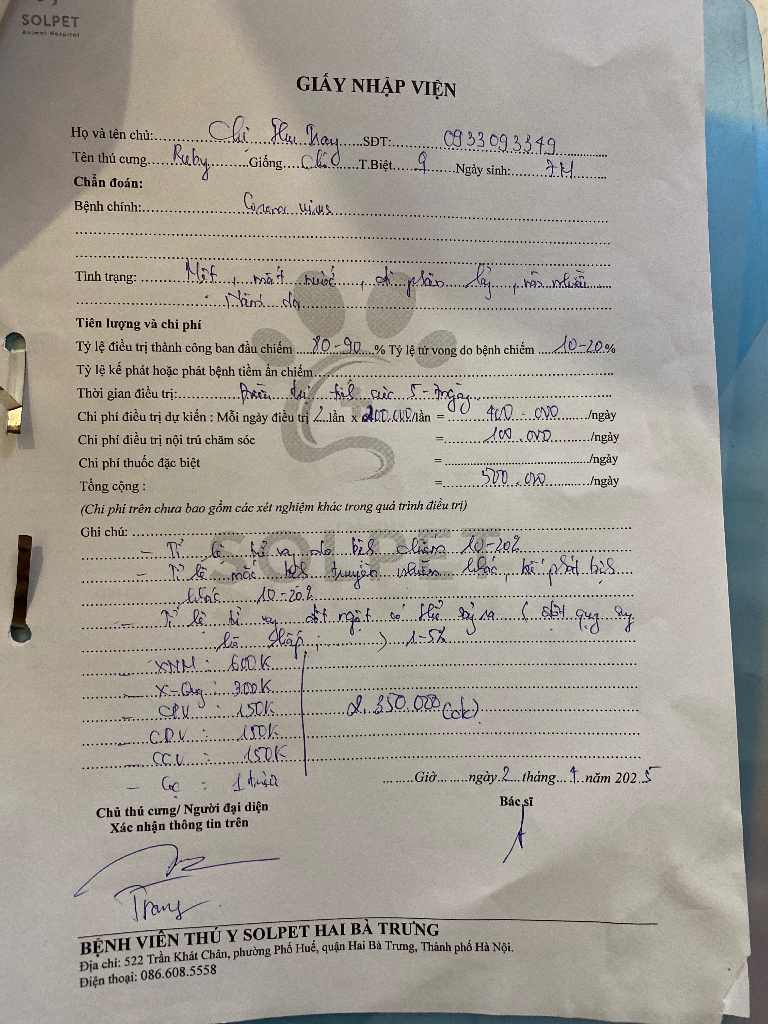 SOLPET
Animal Hospital
GIẤY NHẬP VIỆN
Họ và tên chủ: Chị Thu Trang SĐT: 0933093349
Tên thú cưng Ruby Giống Chó T.Biệt ♀ Ngày sinh: 7M
Chẩn đoán:
Bệnh chính: Corona virus
Tình trạng: Mệt, mất nước, đi phân lỏng, nôn nhiều
Tiên lượng và chi phí
Tỷ lệ điều trị thành công ban đầu chiếm 80-90 % Tỷ lệ tử vong do bệnh chiếm 10-20 %
Tỷ lệ kế phát hoặc phát bệnh tiềm ẩn chiếm
Thời gian điều trị: Điều trị tích cực 5-7 ngày
Chi phí điều trị dự kiến : Mỗi ngày điều trị 2 lần x 200.000/lần = 400.000 /ngày
Chi phí điều trị nội trú chăm sóc = 100.000 /ngày
Chi phí thuốc đặc biệt = /ngày
Tổng cộng : = 500.000 /ngày
(Chi phí trên chưa bao gồm các xét nghiệm khác trong quá trình điều trị)
SOLPET
Ghi chú:
- Tỉ lệ tử vong do bệnh chiếm 10-20%
- Tỉ lệ mắc bệnh truyền nhiễm khác, kế phát bệnh
khác 10-20%
- Tỉ lệ tử vong đột ngột có thể xảy ra ( đột quỵ, suy
hô hấp, ) 1-5%
- XNM : 600K
- X-Quang : 300K
- CPV : 150K 2.350.000 (ck)
- CDV : 150K
- CCV : 150K
- Cọc : 1 triệu
Giờ ngày 2 tháng 4 năm 2025
Chủ thú cưng/ Người đại diện
Xác nhận thông tin trên
Bác sĩ
Trang
BỆNH VIỆN THÚ Y SOLPET HAI BÀ TRƯNG
Địa chỉ: 522 Trần Khát Chân, phường Phố Huế, quận Hai Bà Trưng, Thành phố Hà Nội.
Điện thoại: 086.608.5558